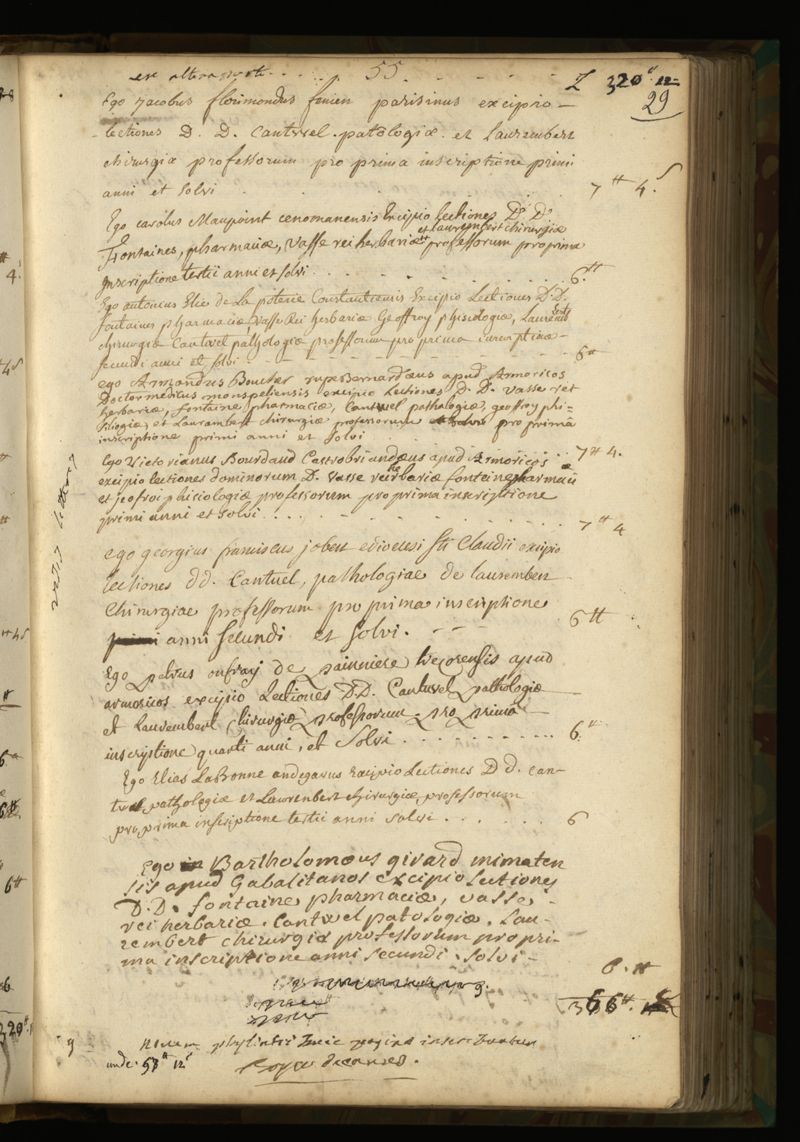 ex altera parte . . . . 55. . . . . . . 320 ₶ 12
29
Ego Jacobus florimondus parisinus excipio
lectiones D. D. Cantwel patologiæ et Laurembert
chirurgiæ professorum pro prima inscriptione primi
anni et solvi . . . 7 ₶ 4 s
Ego carolus Maupoint cenomanensis Excipio Lectiones D. D.
fontaines, pharmaciæ, Vasse rei herbariæ et laurembert chirurgiæ professorum pro prima
Inscriptione tertii anni et solvi . . . . . . 6 ₶
Ego antonius Elie de La poterie Constantiensis Excipio Lectiones D. D.
fontaines pharmaciæ, Vasse Rei herbariæ Geoffroy phisiologiæ, Laurembert
chirurgiæ Cantwel pathologiæ professorum pro prima inscriptione
secundi anni et solvi - - - - - 6 ₶
ego Armandus Boucher rupeBernardæus apud Armoricos
Doctor medicus monspeliensis excipio Lectiones D. D. Vasse rei
herbariæ, fontaine pharmaciæ, Cantwel pathologiæ, geoffroy phi=
siliogiæ, et Laurambert chirurgiæ professorum pro prima
inscriptione primi anni et solvi . . . 7 ₶ 4.
Ego Victorianus Bourdaud Castrobriandæus apud Armoricos
excipio lectiones dominorum D. Vasse rei herbariæ fontaine pharmaciæ
et jeofroi phisiologiæ professorum pro prima inscriptione
primi anni et solvi . . . . . 7 ₶ 4
ego georgius franciscus jobert e diocesi sti Claudii excipio
lectiones dd. Cantuel, pathologiae de laurembert
Chirurgiae professorum pro prima inscriptione
primi anni secundi et solvi. - - 6 ₶
Ego petrus onfray de apud
armoricos excipio Lectiones D. D. Cantwel pathologiæ
et Laurembert Chirurgiæ professorum pro prima
inscriptione quarti anni, et solvi . . . . . . . . 6 ₶
Ego Elias LaBonne andegavus Excipio Lectiones D d. can-
twel pathologiæ et Laurenbert chirurgiæ professorum
pro prima inscriptione tertii anni solvi . . . . . . 6
Ego Bartholomæus givard mimaten
sis apud Gabalitanos excipio lectiones
D. D. fontaine pharmaciæ, vasse
rei herbariæ. Cantwel patologiæ. Lau-
rembert chirurgiæ professorum pro pri-
ma inscriptione anni secundi. solvi - 6. ₶
366 ₶
9 novem pagina inscribuntur
unde 58 ₶ 12 s
decanus.